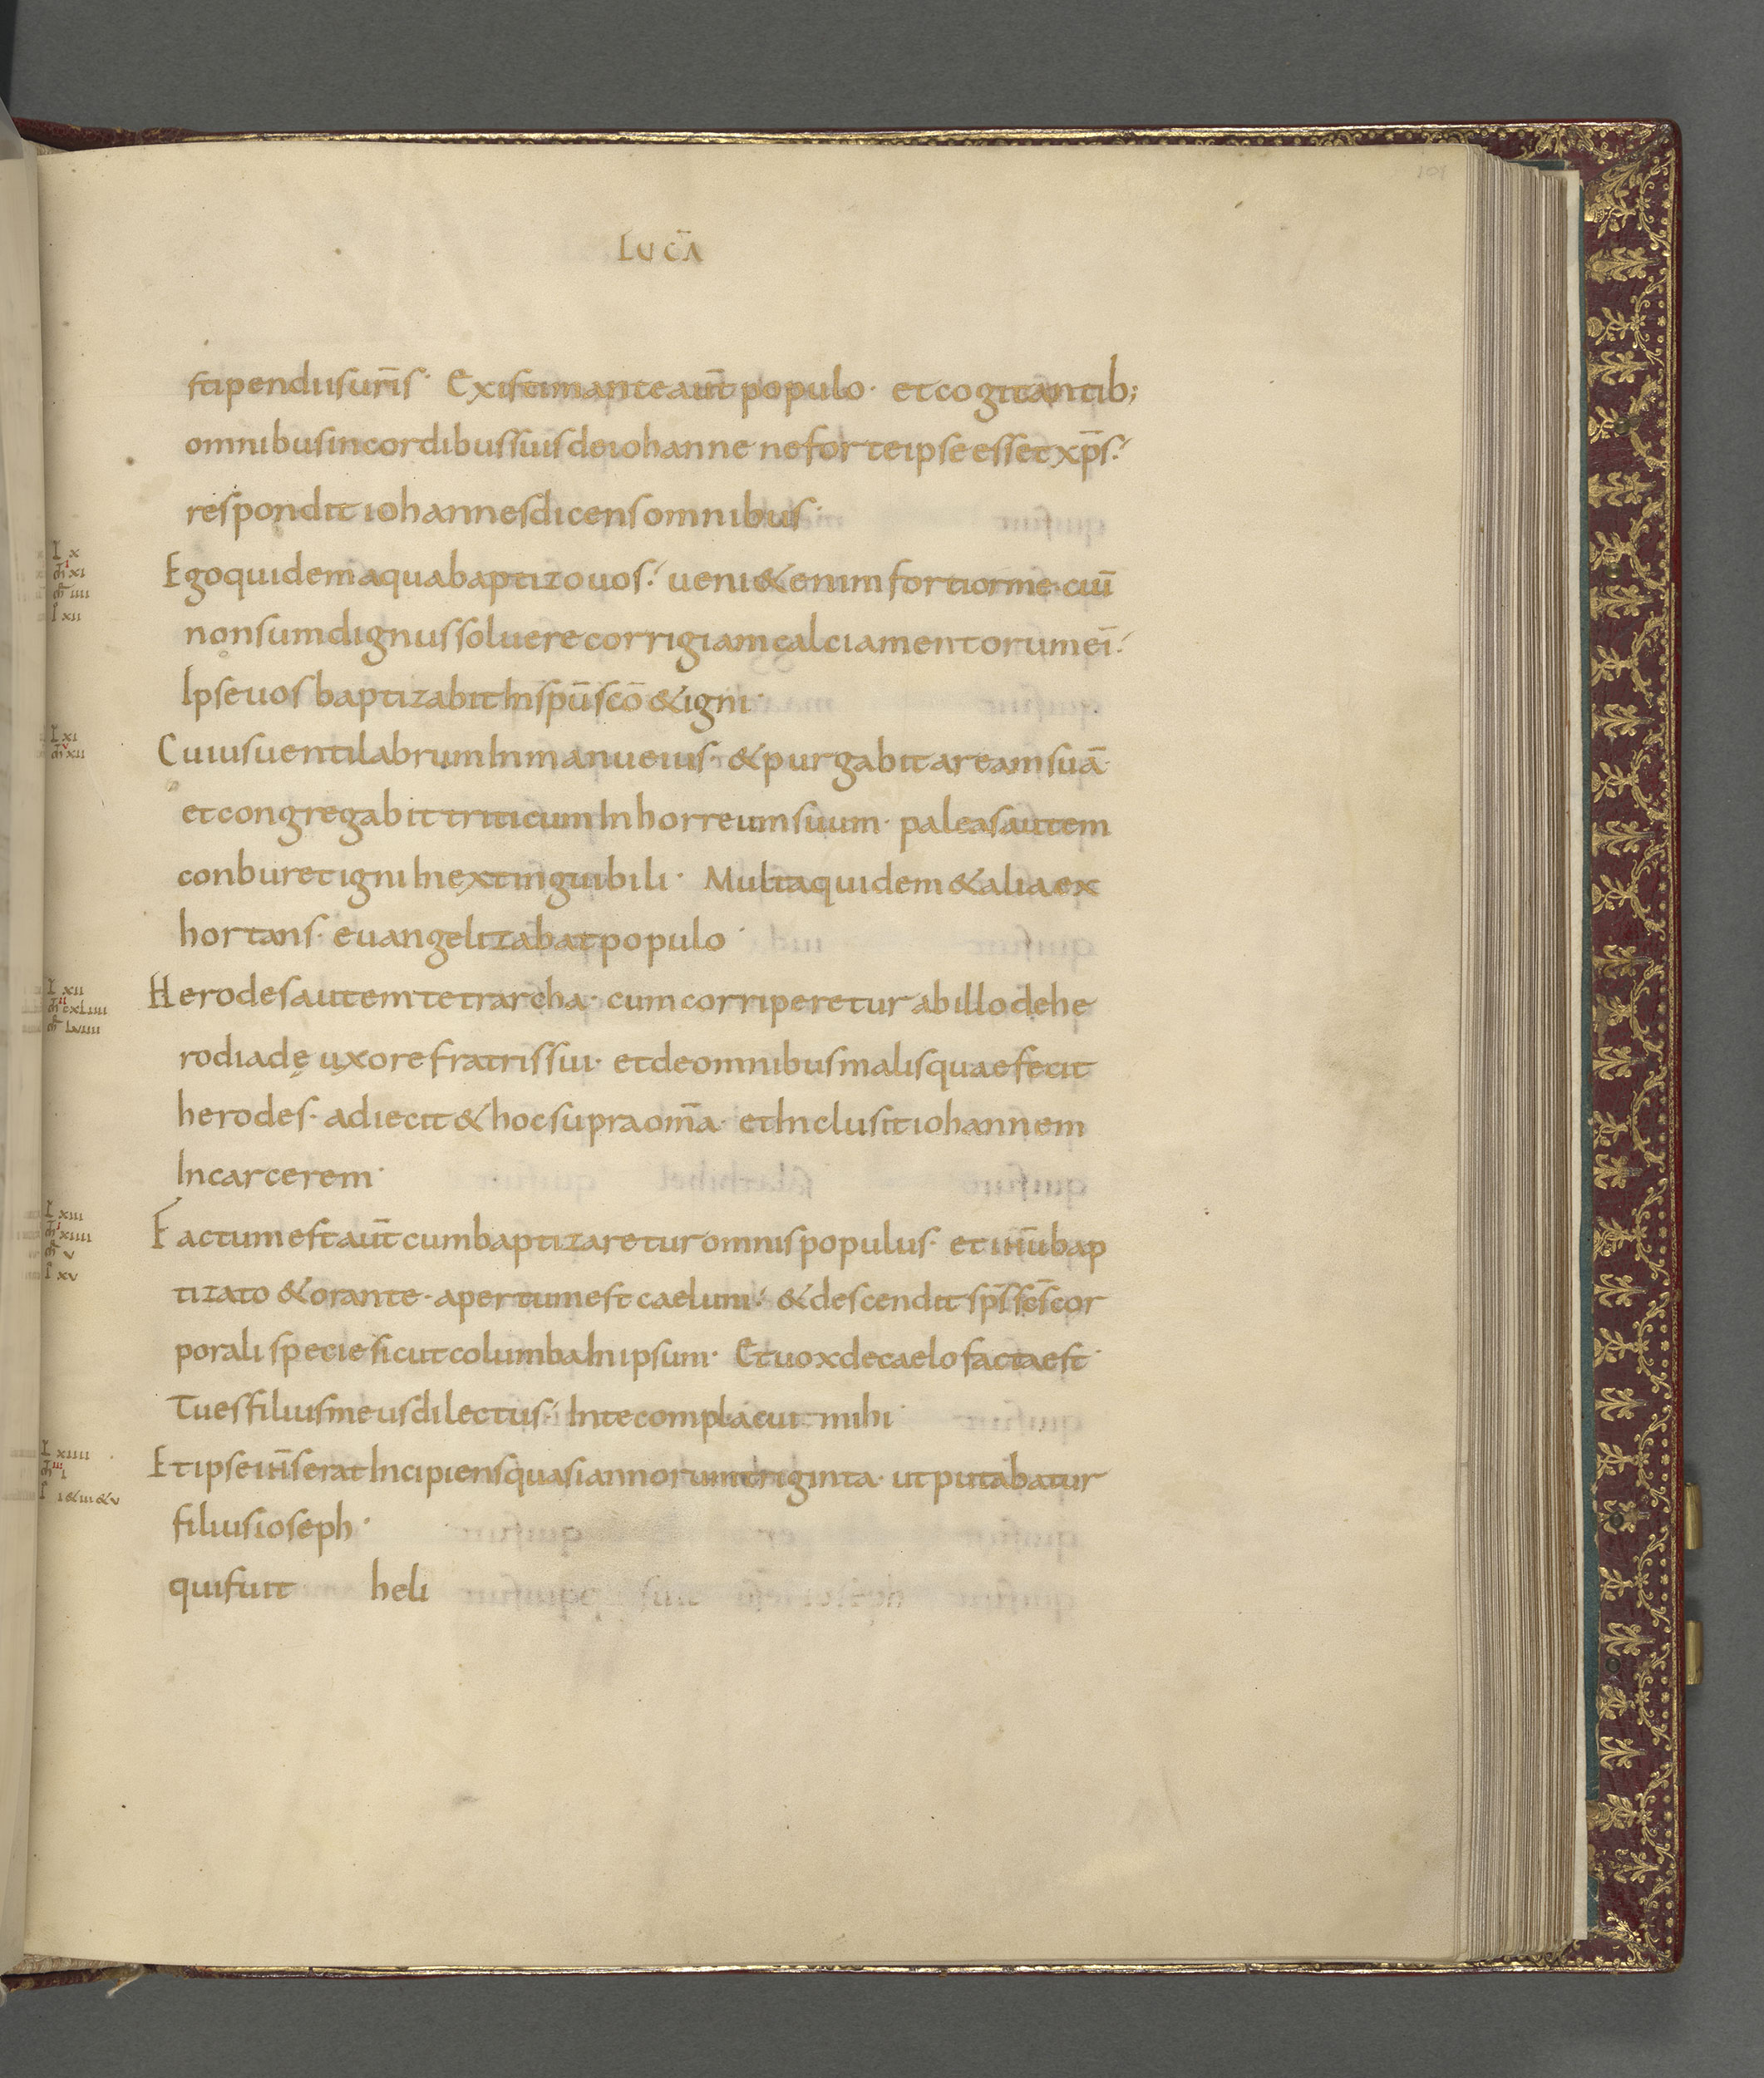 101
LUCĀ
stipendiisur̄is· Existimanteaūtpopulo· etcogitantib;
omnibusincordibussuisdeiohanne neforteipseessetxp̄s·
respondit iohannesdicensomnibus·
I x
m̄ i xi
m̄r iiii
I xii
Egoquidemaquabaptizouos· ueni&enimfortiorme·cuiī
nonsumdignussoluerecorrigiamcalciamentorumeī·
Ipseuosbaptizabitinsp̄uscō&igni·
I xi
m̄ v xii
Cuiusuentilabruminmanueius· &purgabitareamsuā·
etcongregabittriticuminhorreumsuum· paleasautem
conburetigniinextinguibili· Multaquidem&aliaex
hortans· euangelizabatpopulo·
I xii
m̄ ii cxliiii
m̄r lviiii
Herodesautemtetrarcha· cumcorriperetur abillodehe
rodiadę uxorefratrissui· etdeomnibusmalisquaefecit
herodes· adiecit&hocsupraom̄a· etinclusitiohannem
Incarcerem·
I xiii
m̄ i xiiii
m̄r v
I xv
Factumestaūtcumbaptizareturomnispopulus· etih̄ubap
tizato&orante· apertumestcaelum· &descenditsp̄sscs̄cor
poralispeciesicutcolumbainipsum· Etuoxdecaelofactaest·
Tuesfiliusmeusdilectus· Intecomplacuit mihi·
I xiiii
m̄ iii i
I i&iii&v
Etipseih̄seratIncipiensquasiannorumtriginta· utputabatur
filiusioseph·
quifuit heli